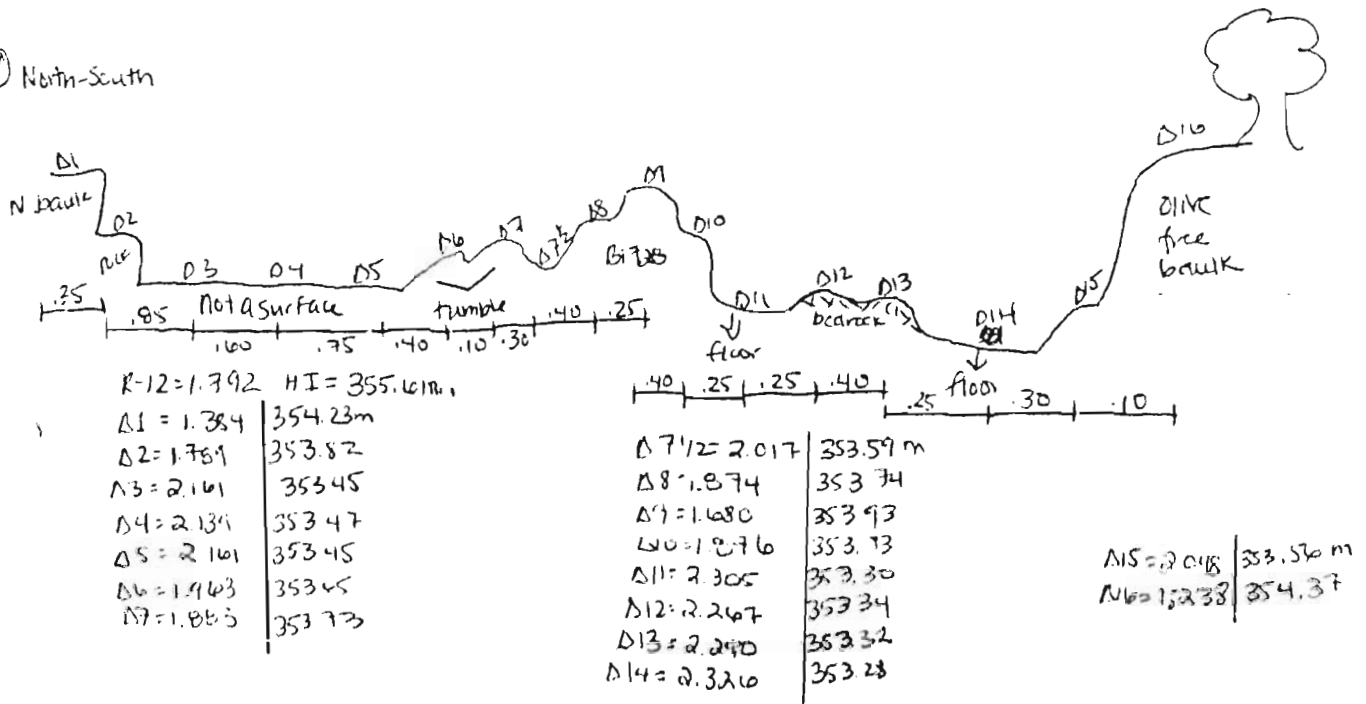 North-South
Δ1
N baulk
Δ2
Δ3
Δ4
Δ5
Not a surface
Δ6
Δ7
Δ7½
Δ8
Δ9
tumble
Δ10
Δ11
floor
Δ12
Δ13
bedrock
Δ14
floor
Δ15
Δ16
olive
tree
baulk
.25
.85
.60
.75
.40
.10
.30
.40
.25
.40
.25
.25
.40
.25
.30
.10
R-12=1.792 HI=355.61m.
Δ1 = 1.384 354.23m
Δ2=1.789 353.82
Δ3=2.161 353 45
Δ4=2.139 353 47
Δ5=2 161 353 45
Δ6=1.963 353 65
Δ7=1.885 353 73
Δ7 1/2=2.017 353.59 m
Δ8=1.874 353 74
Δ9=1.680 353 93
Δ10=1.876 353.73
Δ11=2.305 353.30
Δ12=2.267 353 34
Δ13=2.290 353 32
Δ14=2.326 353.28
Δ15=2 048 353.56 m
Δ16=1.238 354.37